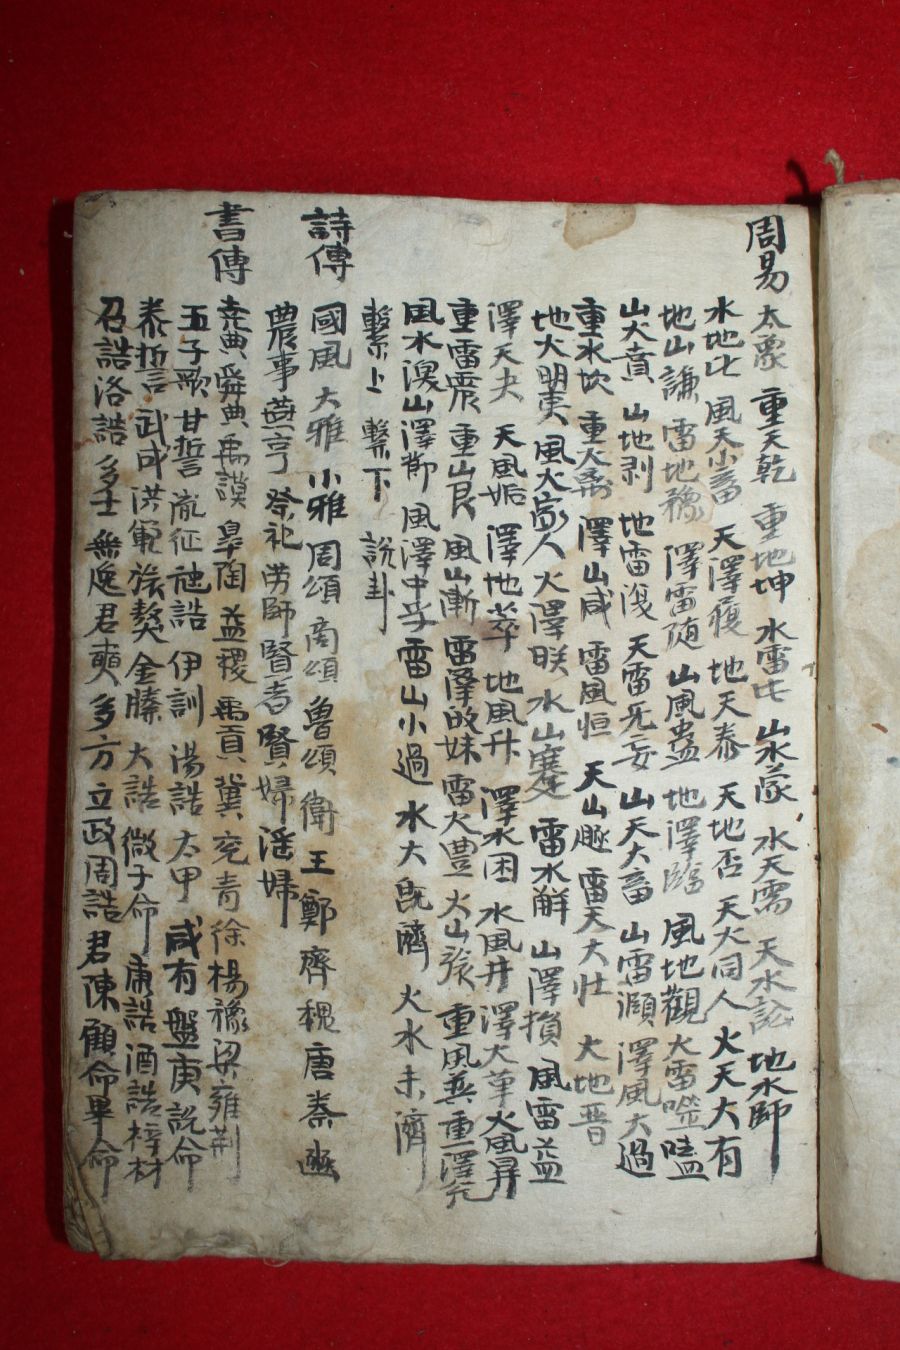 周易 太象 重天乾 重地坤 水雷屯 山水蒙 水天需 天水訟 地水師
水地比 風天小畜 天澤履 地天泰 天地否 天火同人 火天大有
地山謙 雷地豫 澤雷随 山風蠱 地澤臨 風地觀 火雷噬嗑
山火賁 山地剥 地雷復 天雷无妄 山天大畜 山雷頤 澤風大過
重水坎 重火离 澤山咸 雷風恒 天山遯 雷天大壮 火地晋
地火明夷 風火家人 火澤睽 水山蹇 雷水解 山澤損 風雷益
澤天夬 天風姤 澤地萃 地風升 澤水困 水風井 澤火革 火風鼎
重雷震 重山艮 風山漸 雷澤故妹 雷火豊 火山旅 重風巽 重澤兌
風水渙 山澤節 風澤中孚 雷山小過 水火既濟 火水未濟
繫上 繫下 說卦
詩傳 國風 大雅 小雅 周頌 商頌 魯頌 衛 王 鄭 齊 魏 唐 秦 豳
農事 燕亨 祭祀 劳師 賢者 賢婦 滛婦
書傳 堯典 舜典 禹謨 皐陶 益稷 禹貢 冀 兗 青 徐 楊 豫 梁 雍 荆
五子歌 甘誓 胤征 虺誥 伊訓 湯誥 太甲 咸有 盤庚 說命
泰誓 武成 洪範 旅獒 金縢 大誥 微子命 康誥 酒誥 梓材
召誥 洛誥 多士 無逸 君奭 多方 立政 周誥 君陳 顧命 畢命